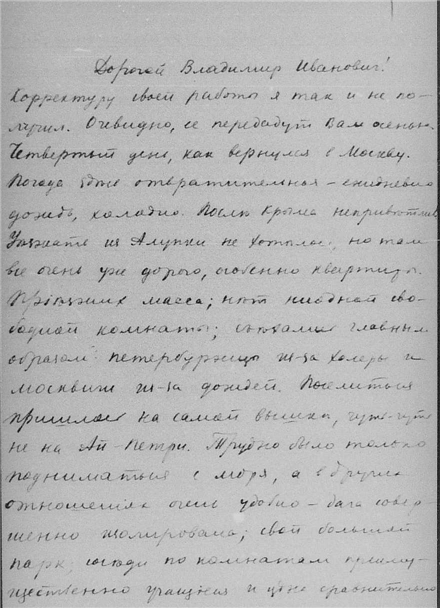 Дорогой Владимир Иванович!
Корректуру своей работы я так и не по-
лучил. Очевидно, ее передадут Вам осенью.
Четвертый день, как вернулся в Москву.
Погода тоже отвратительная – ежедневно
дождь, холодно. После Крыма неприветливо.
Уезжать из Алупки не хотелось, но там
все очень уже дорого, особенно квартиры.
Приезжих масса; нет ниодной сво-
бодной комнаты; съехались главным
образом петербуржцы из-за холеры и
москвичи из-за дождей. Поселиться
пришлось на самой вышке, чуть-чуть
не на Ай-Петри. Трудно было только
подниматься с моря, а в других
отношениях очень удобно – дача совер-
шенно изолирована; свой большой
парк; соседи по комнатам преиму-
щественно учащиеся и цены сравнительно